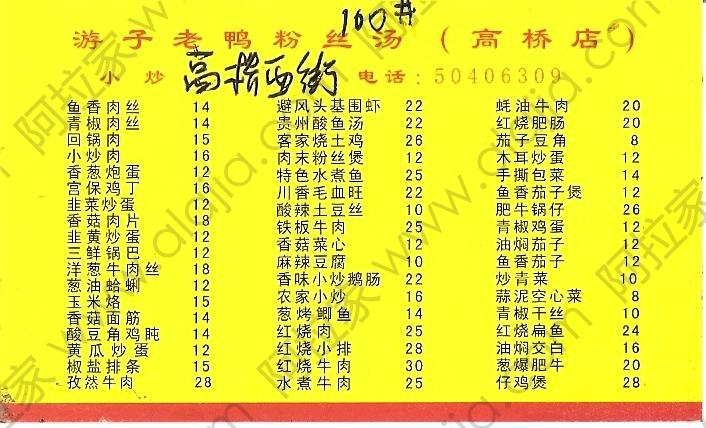 160弄
游子老鸭粉丝汤（高桥店）
小炒 高桥西街 电话:50406309
鱼香肉丝 14 避风头基围虾 22 蚝油牛肉 20
青椒肉丝 14 贵州酸鱼汤 22 红烧肥肠 20
回锅肉 15 客家烧土鸡 26 茄子豆角 8
小炒肉 16 肉末粉丝煲 12 木耳炒蛋 12
香葱炮蛋 12 特色水煮鱼 25 手撕包菜 14
宫保鸡丁 16 川香毛血旺 22 鱼香茄子煲 12
韭菜炒蛋 12 酸辣土豆丝 10 肥牛锅仔 26
香菇肉片 18 铁板牛肉 25 青椒鸡蛋 12
韭黄炒蛋 12 香菇菜心 12 油焖茄子 12
三鲜锅巴 12 麻辣豆腐 10 鱼香茄子 12
洋葱牛肉丝 18 香味小炒鹅肠 22 炒青菜 10
葱油蛤蜊 12 农家小炒 16 蒜泥空心菜 8
玉米烙 15 葱烤鲫鱼 14 青椒干丝 10
香菇面筋 14 红烧肉 25 红烧扁鱼 24
酸豆角鸡肫 14 红烧小排 28 油焖交白 16
黄瓜炒蛋 12 红烧牛肉 30 葱爆肥牛 20
椒盐排条 15 水煮牛肉 25 仔鸡煲 28
孜然牛肉 28
阿拉家 www.alajia.com